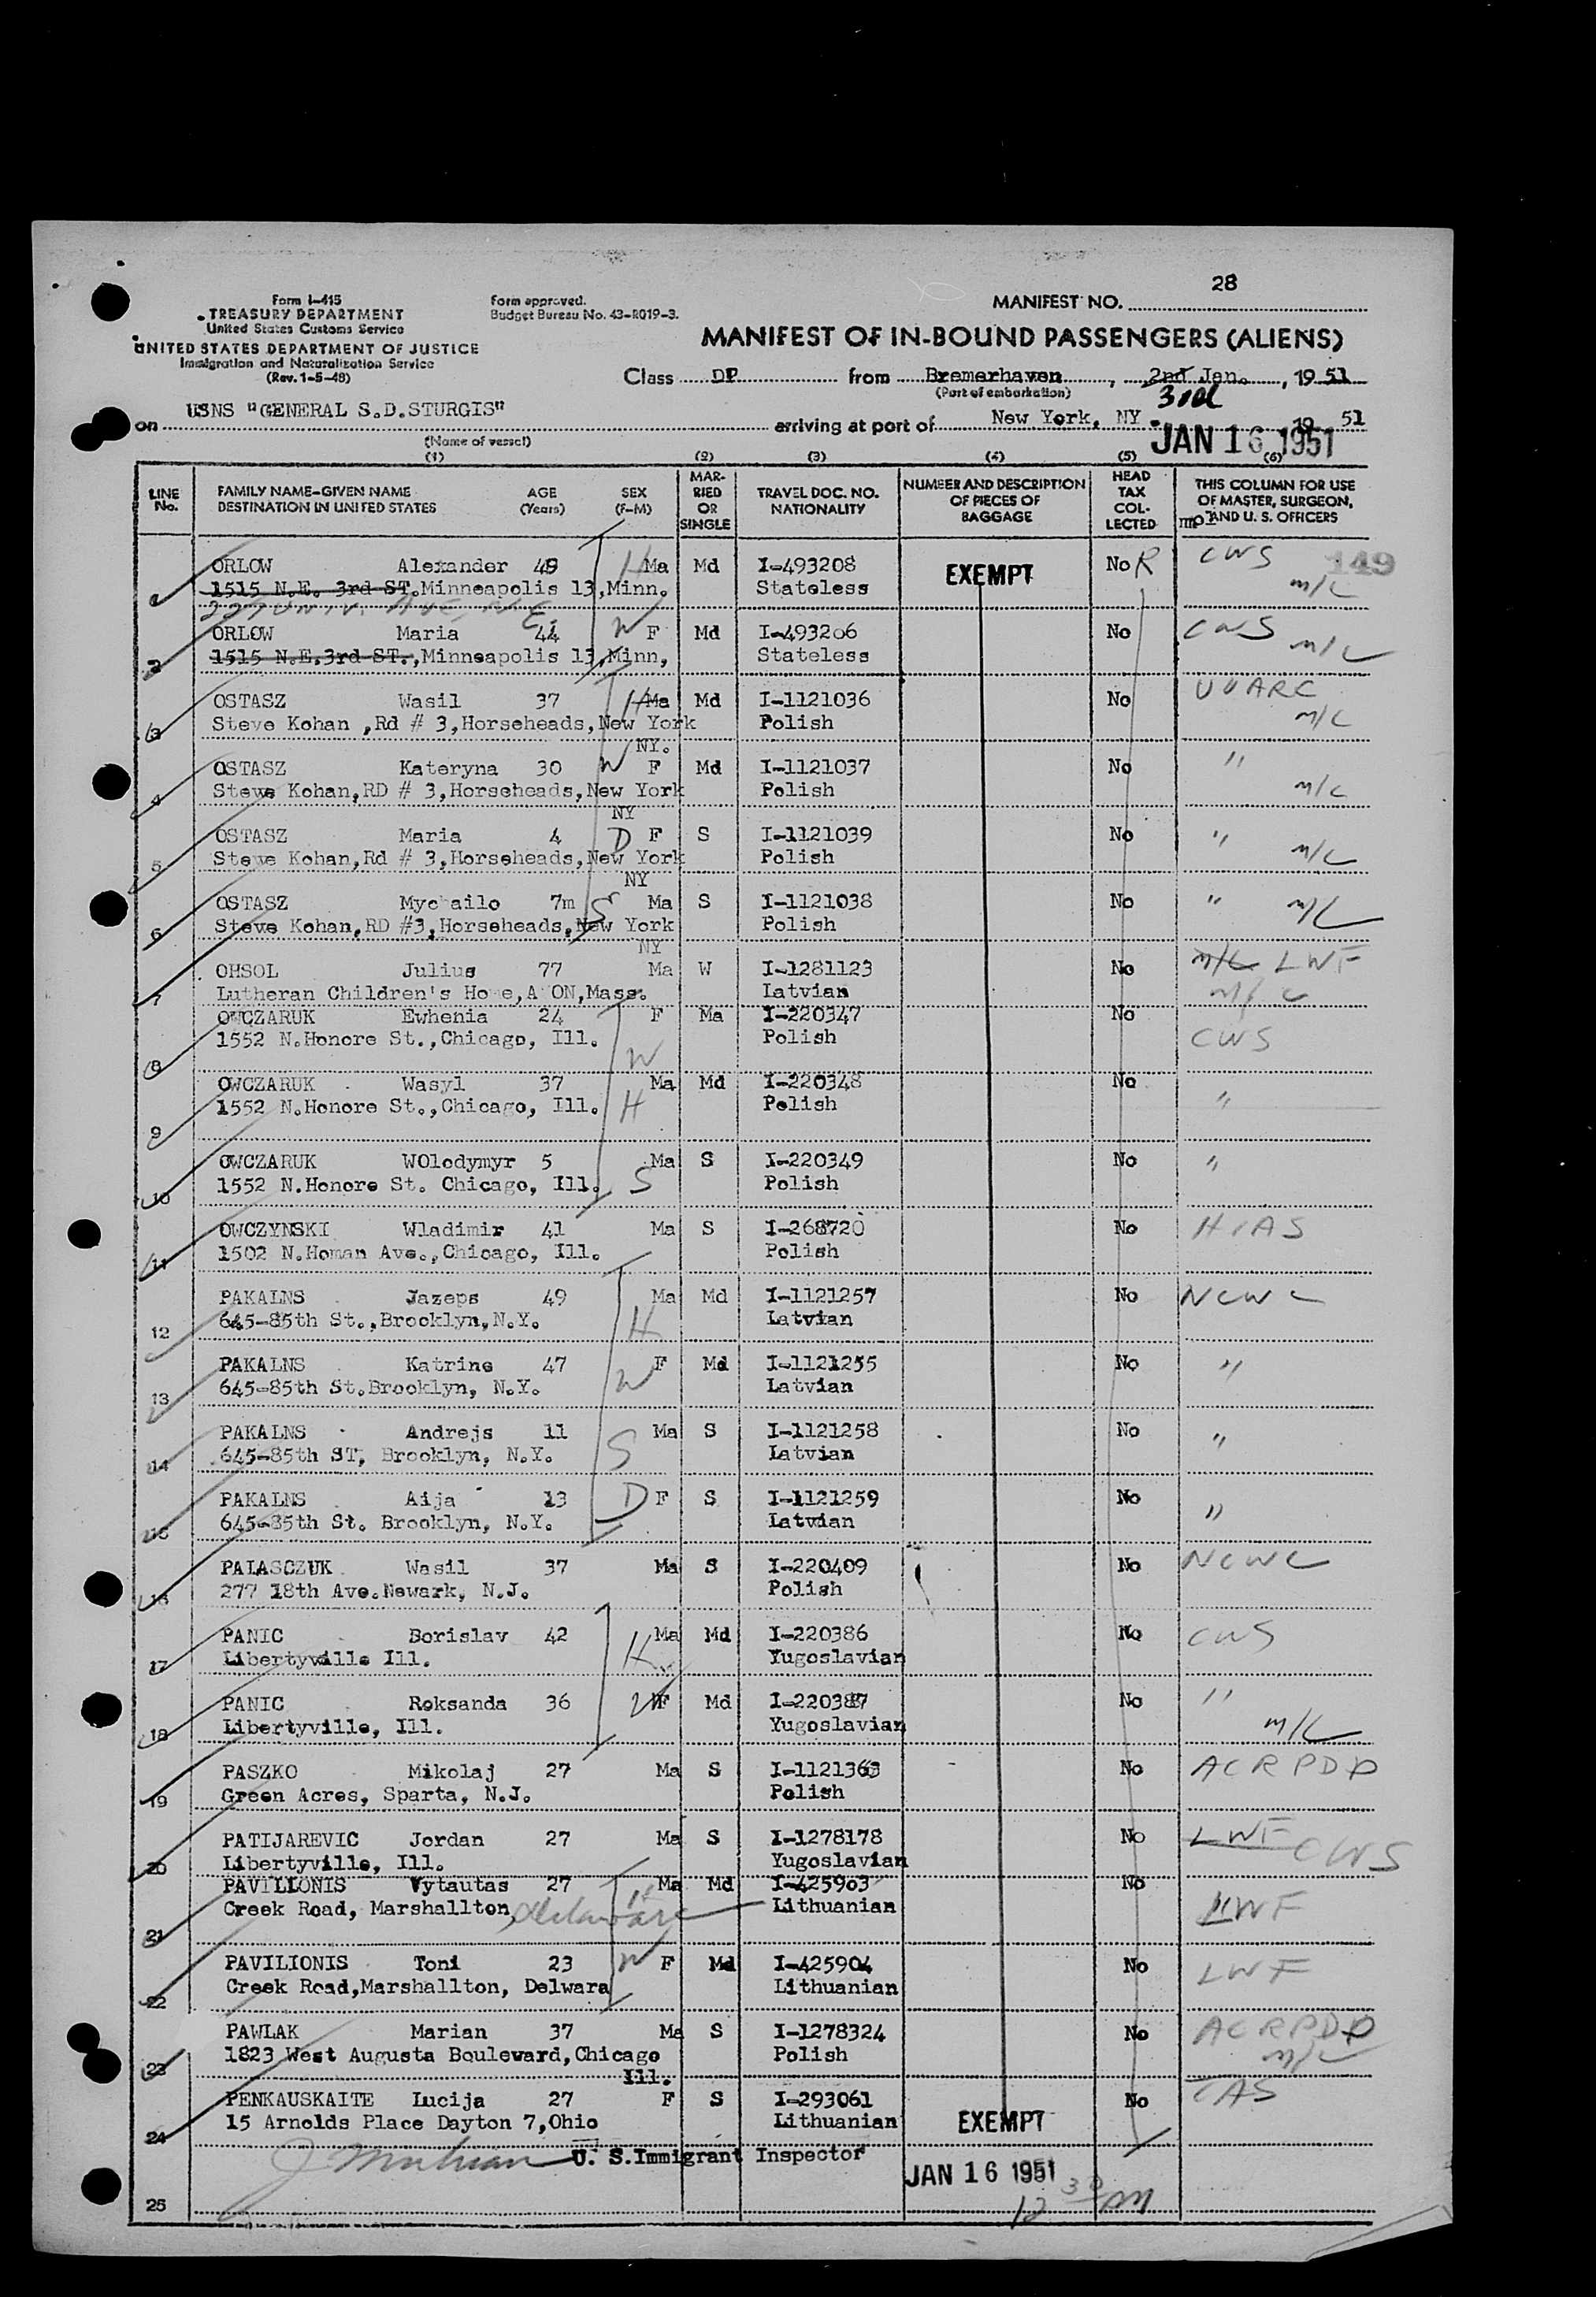 28
MANIFEST NO.
Form I-415
TREASURY DEPARTMENT
United States Customs Service
UNITED STATES DEPARTMENT OF JUSTICE
Immigration and Naturalization Service
(Rev. 1-5-48)
Form approved.
Budget Bureau No. 43-R019-3.
MANIFEST OF IN-BOUND PASSENGERS (ALIENS)
Class DP from Bremerhaven, 2nd Jan., 19 51
(Port of embarkation) 3rd
on USNS "GENERAL S.D.STURGIS" arriving at port of New York, NY. 19 51
(Name of vessel) JAN 16 1951
(1) (2) (3) (4) (5) (6)
LINE No. FAMILY NAME-GIVEN NAME DESTINATION IN UNITED STATES AGE (Years) SEX (F-M) MARRIED OR SINGLE TRAVEL DOC. NO. NATIONALITY NUMBER AND DESCRIPTION OF PIECES OF BAGGAGE HEAD TAX COLLECTED THIS COLUMN FOR USE OF MASTER, SURGEON, AND U. S. OFFICERS
149
1 ORLOW Alexander 49 H Ma Md I-493208 EXEMPT No R CWS
1515 N.E. 3rd ST.Minneapolis 13,Minn. Stateless m/c
227 UNIV. AVE, N.E.
2 ORLOW Maria 44 W F Md I-493206 No CWS
1515 N.E.3rd ST.,Minneapolis 13,Minn, Stateless m/c
3 OSTASZ Wasil 37 H Ma Md I-1121036 No UUARC
Steve Kohan ,Rd # 3,Horseheads,New York Polish m/c
NY.
4 OSTASZ Kateryna 30 W F Md I-1121037 No "
Steve Kohan,RD # 3,Horseheads,New York Polish m/c
NY
5 OSTASZ Maria 4 D F S I-1121039 No "
Steve Kohan,Rd # 3,Horseheads,New York Polish m/c
NY
6 OSTASZ Mychailo 7m S Ma S I-1121038 No "
Steve Kohan,RD #3,Horseheads,New York Polish m/c
NY
7 OHSOL Julius 77 Ma W I-1281123 No m/c LWF
Lutheran Children's Home,AVON,Mass. Latvian m/c
8 OWCZARUK Ewhenia 24 F Ma I-220347 No
1552 N.Honore St.,Chicago, Ill. W Polish CWS
9 OWCZARUK Wasyl 37 Ma Md I-220348 No
1552 N.Honore St.,Chicago, Ill. H Polish "
10 OWCZARUK WOlodymyr 5 Ma S I-220349 No "
1552 N.Honore St. Chicago, Ill. S Polish
11 OWCZYNSKI Wladimir 41 Ma S I-268720 No HIAS
1502 N.Homan Ave.,Chicago, Ill. Polish
12 PAKALNS Jazeps 49 Ma Md I-1121257 No NCWC
645-85th St.,Brooklyn,N.Y. H Latvian
13 PAKALNS Katrine 47 F Md I-1121255 No "
645-85th St.Brooklyn, N.Y. W Latvian
14 PAKALNS Andrejs 11 Ma S I-1121258 No "
645-85th ST, Brooklyn, N.Y. S Latvian
15 PAKALNS Aija 13 D F S I-1121259 No "
645-85th St. Brooklyn, N.Y. Latvian
16 PALASCZUK Wasil 37 Ma S I-220409 No NCWC
277 18th Ave.Newark, N.J. Polish
17 PANIC Borislav 42 Ma Md I-220386 No CWS
Libertyville Ill. H Yugoslavian
18 PANIC Roksanda 36 W F Md I-220387 No "
Libertyville, Ill. Yugoslavian m/c
19 PASZKO Mikolaj 27 Ma S I-1121363 No ACRPDP
Green Acres, Sparta, N.J. Polish
20 PATIJAREVIC Jordan 27 Ma S I-1278178 No LWF CWS
Libertyville, Ill. Yugoslavian
21 PAVILIONIS Vytautas 27 H Ma Md I-425903 No
Creek Road, Marshallton, Delaware Lithuanian LWF
22 PAVILIONIS Toni 23 W F Md I-425904 No LWF
Creek Road,Marshallton, Delwara Lithuanian
23 PAWLAK Marian 37 Ma S I-1278324 No ACRPDP
1823 West Augusta Boulevard,Chicago Polish m/c
Ill.
24 PENKAUSKAITE Lucija 27 F S I-293061 No
15 Arnolds Place Dayton 7,Ohio Lithuanian EXEMPT
U. S.Immigrant Inspector
JAN 16 1951
12 30 PM
25